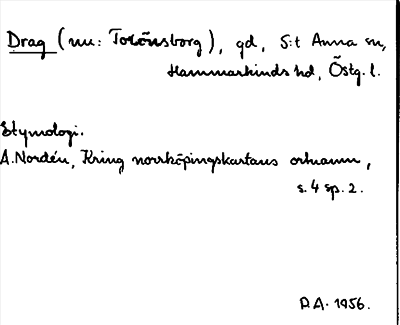 Drag (nu: Torönsborg), gd, S:t Anna sn,
Hammarkinds hd, Östg. l.
Etymologi.
A. Nordén, Kring norrköpingskartans ortnamn,
s. 4 sp. 2.
A. 1956.